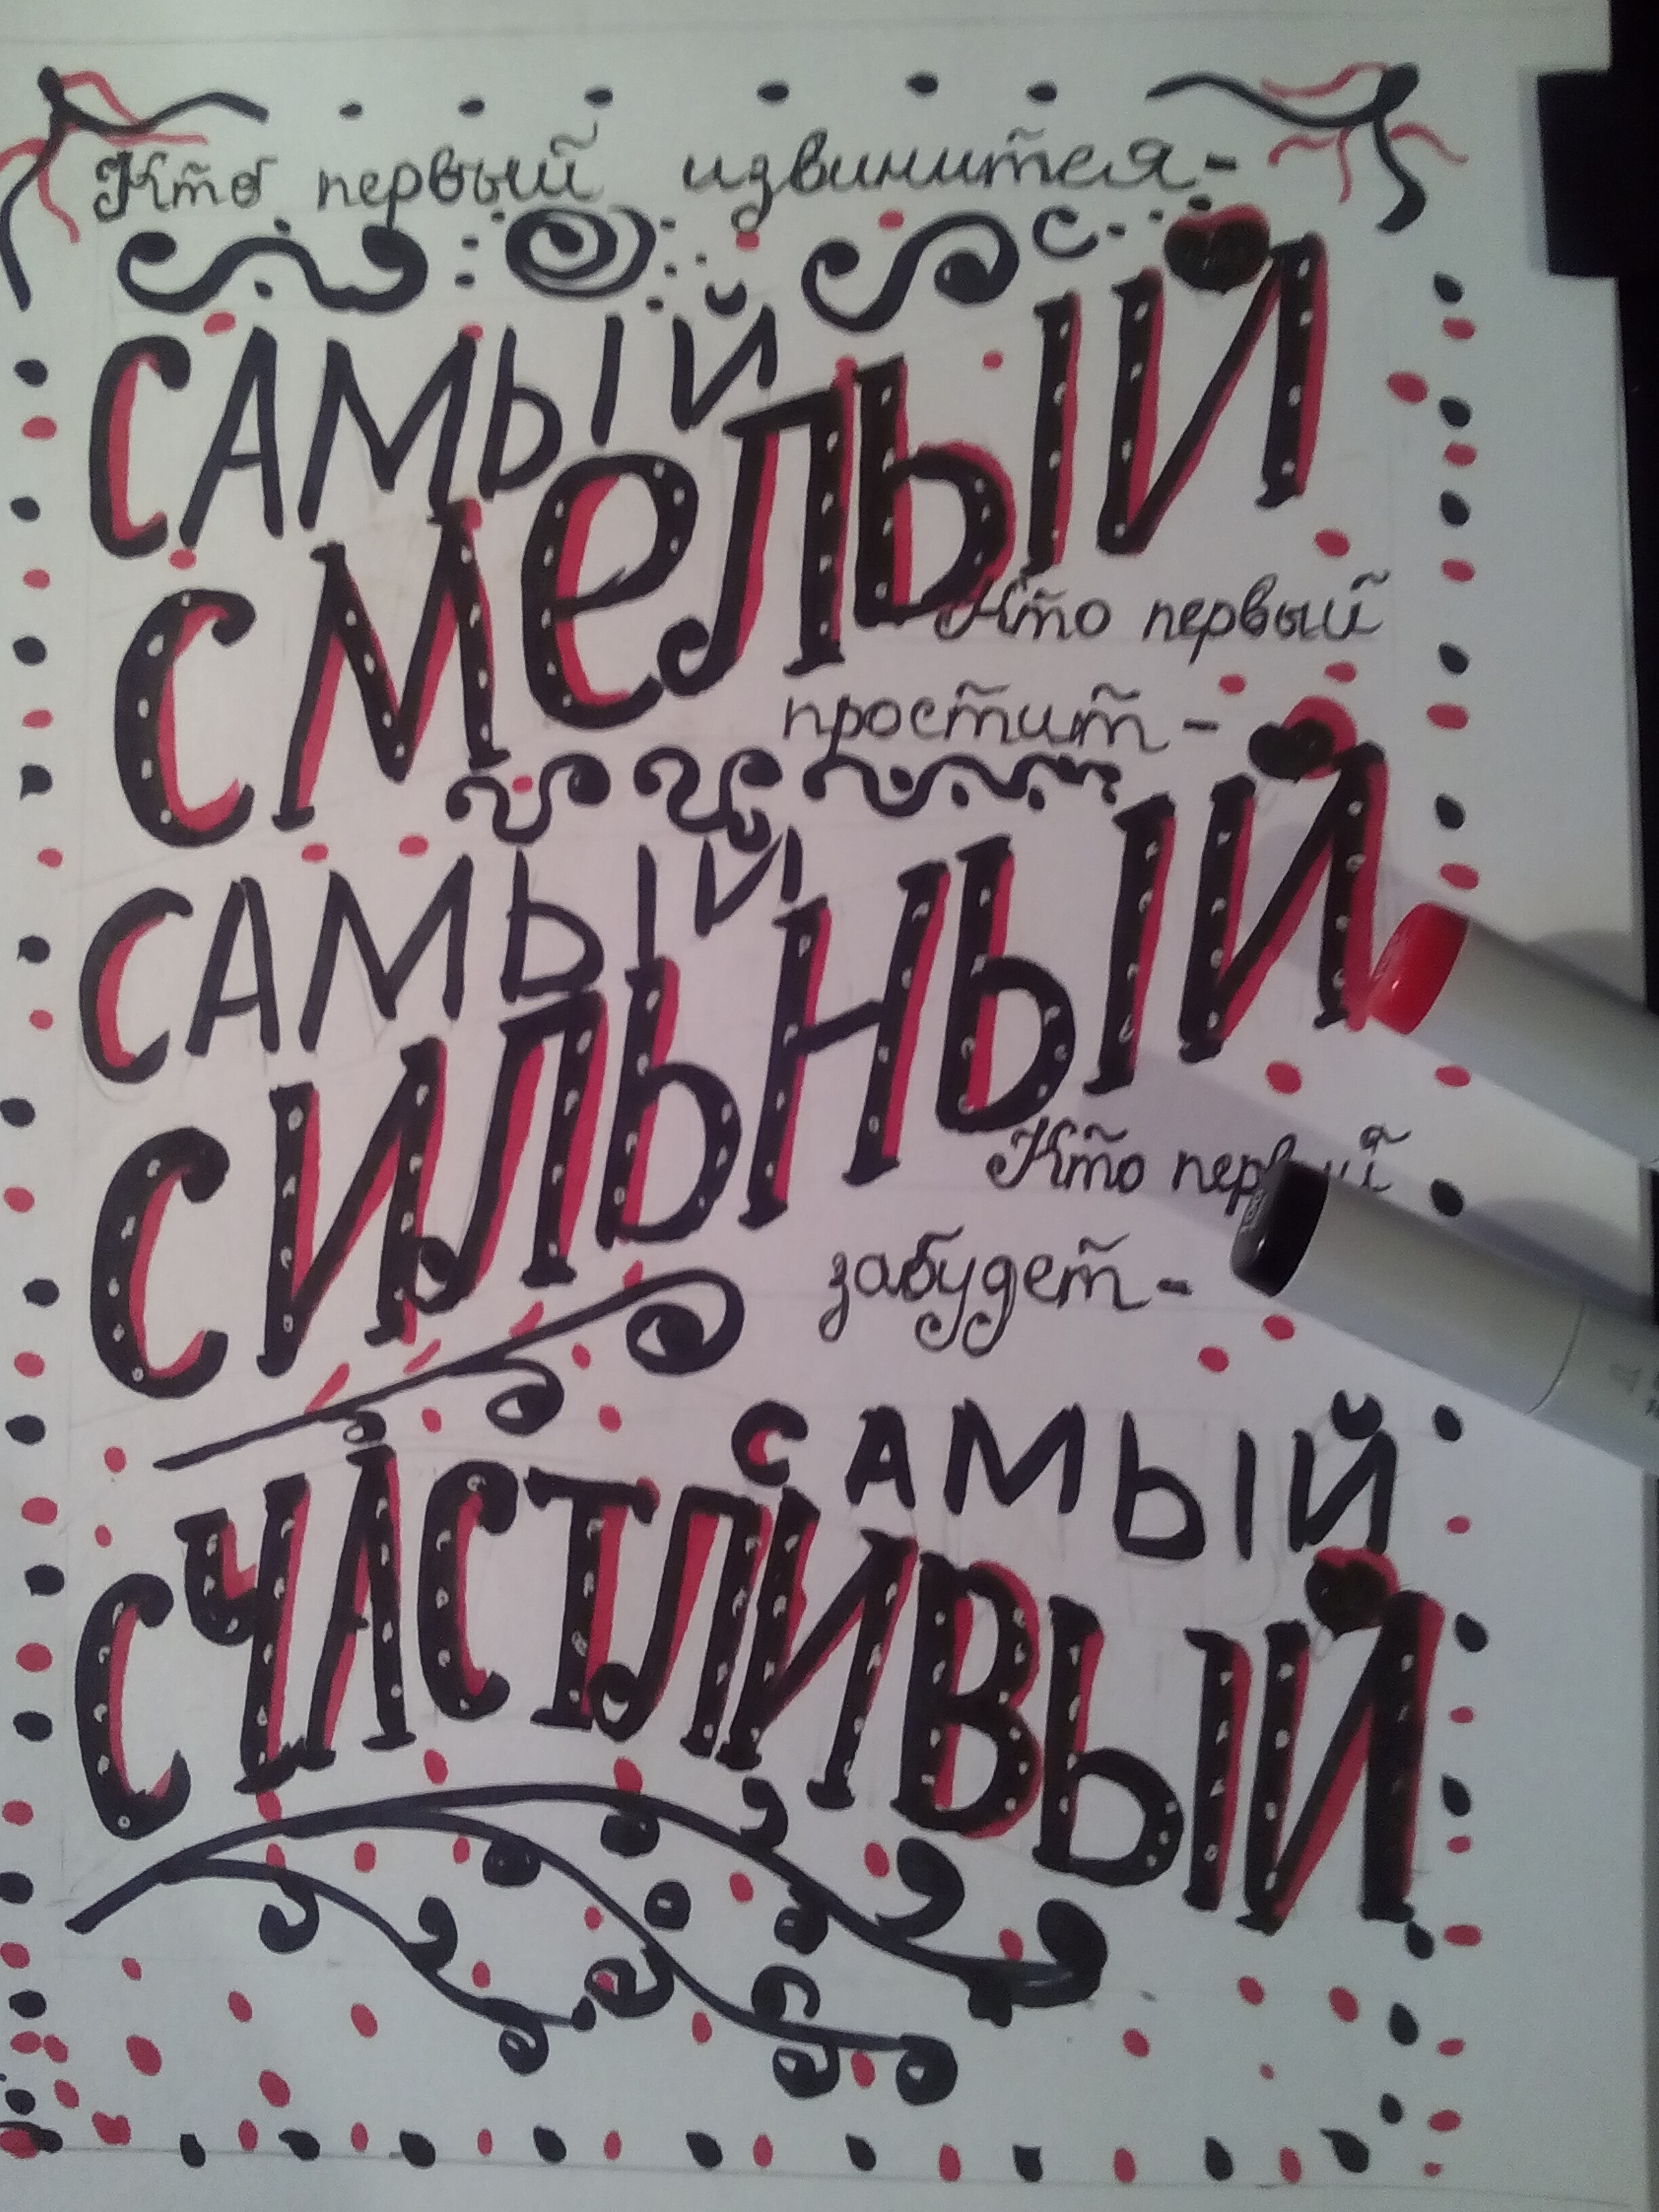 Кто первый извинится-
САМЫЙ
СМеЛЫЙ
Кто первый
простит-
САМЫЙ
СИЛЬНЫЙ
Кто первый
забудет-
САМЫЙ
СЧАСТЛИВЫЙ